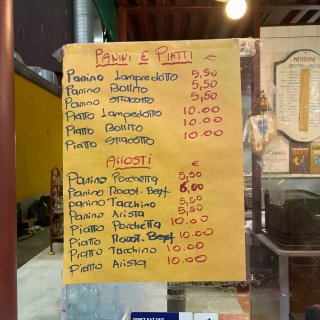 PANINI E PIATTI €
Panino Lampredotto 5,50
Panino Bollito 5,50
Panino Stracotto 5,50
Piatto Lampredotto 10.00
Piatto Bollito 10.00
Piatto Stracotto 10.00
Arrosti €
Panino Porchetta 5,50
Panino Roast-Beef 6,00
Panino Tacchino 5,50
Panino Arista 5,50
Piatto Porchetta 10.00
Piatto Roast-Beef 10.00
Piatto Tacchino 10.00
Piatto Arista 10.00